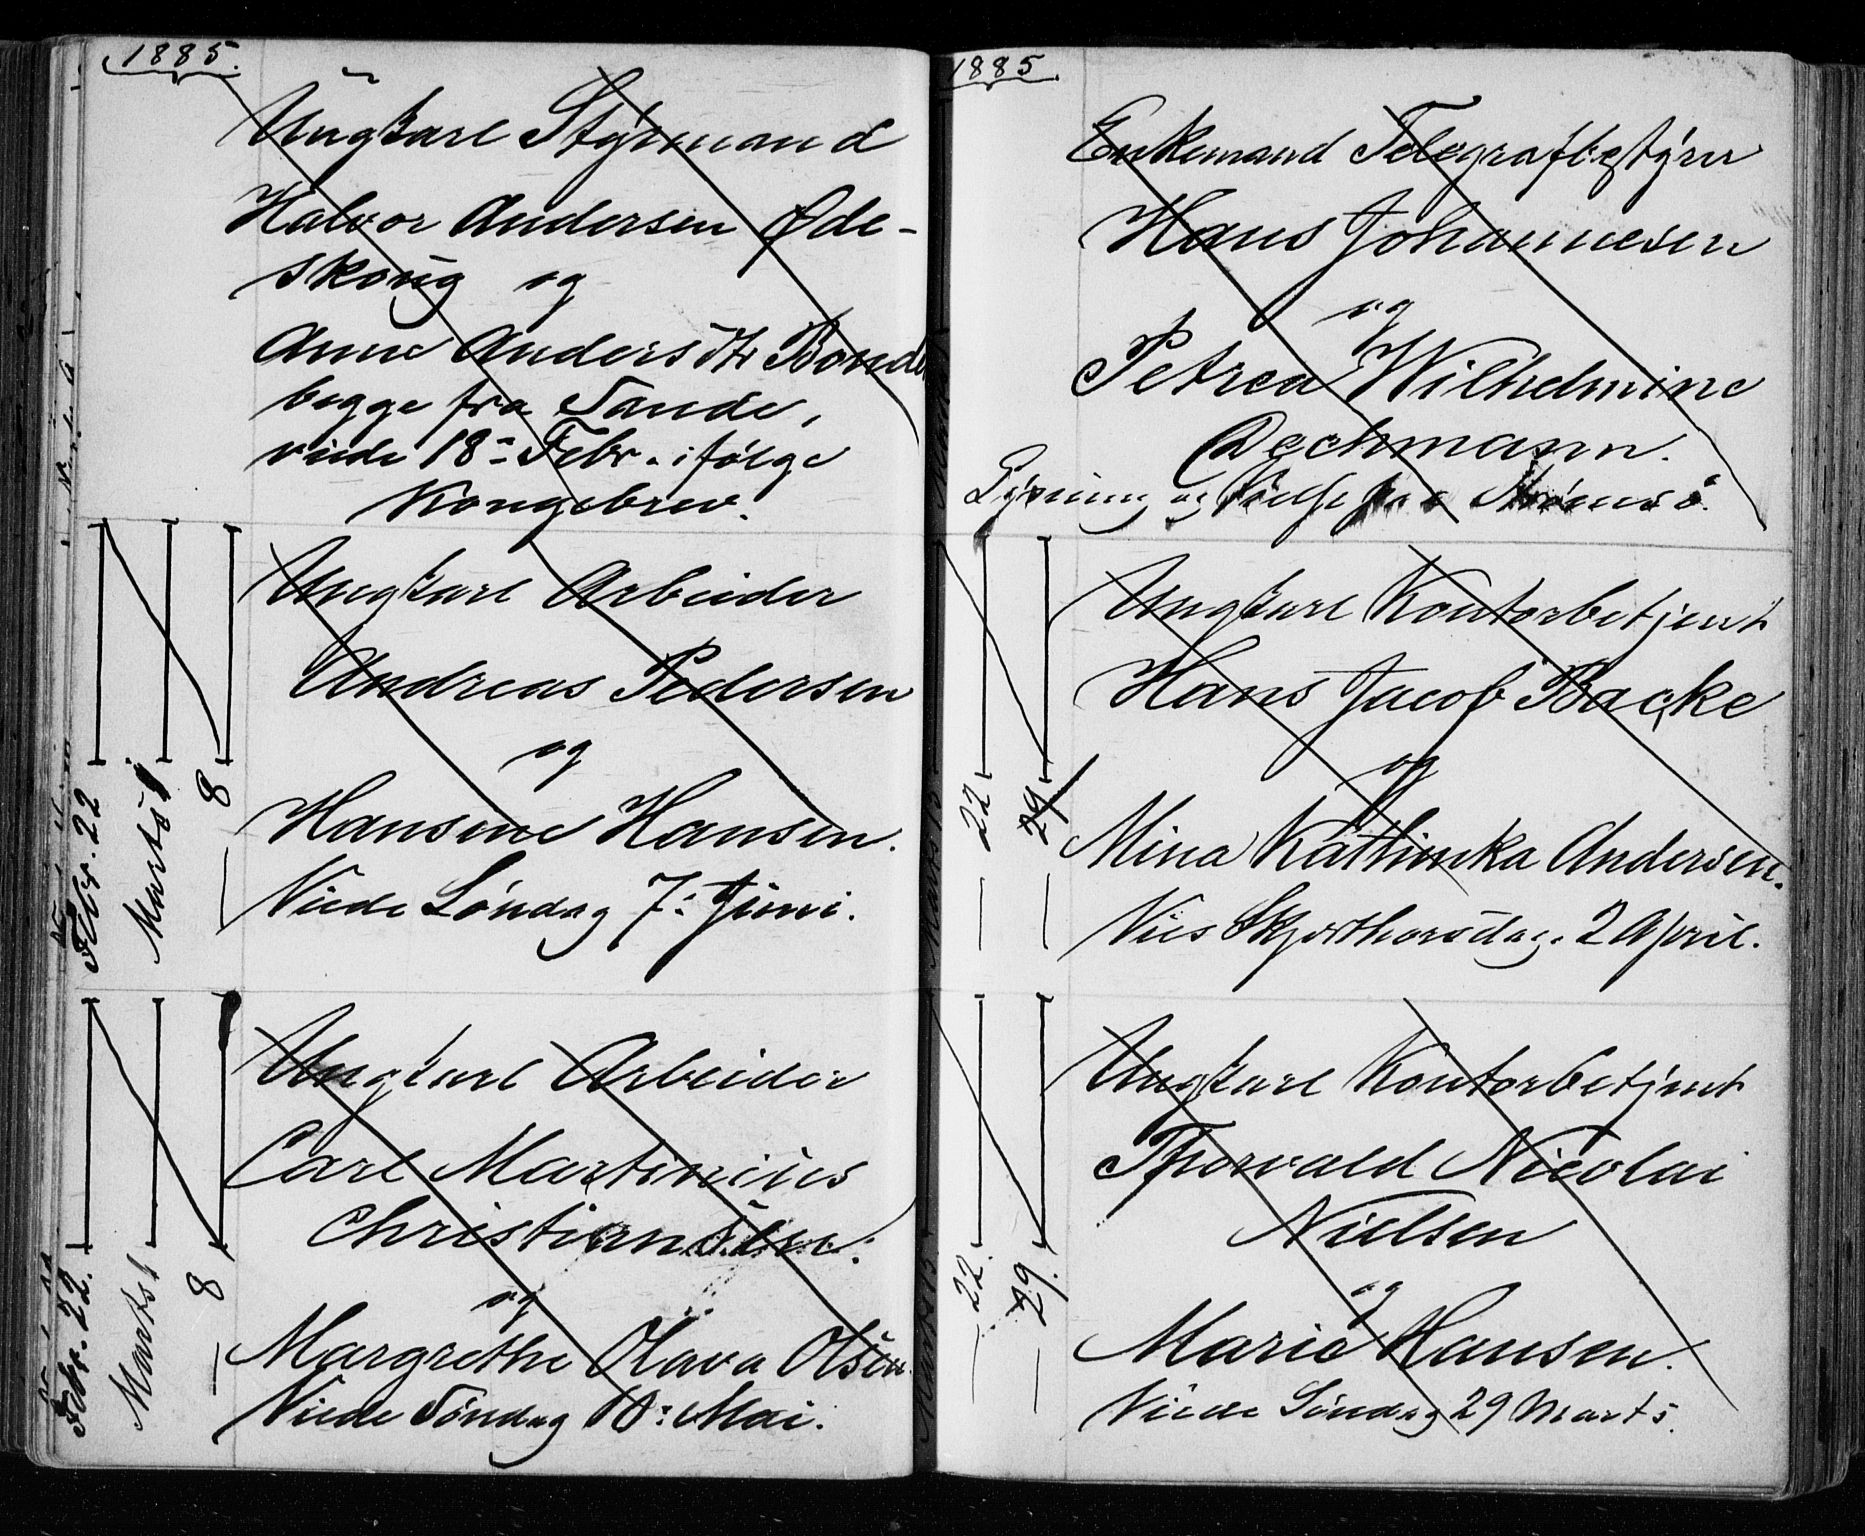 1885.
Ungkarl Styrmand
Halvor Andersen Øde-
skoug og
Anne Andersdtr Bonde
begge fra Sande,
viede 18de Febr. ifølge
Kongebrev.
Febr. 22
Marts 1
8
Ungkarl Arbeider
Andreas Pedersen
og
Hansine Hansen.
Viede Søndag 7: Juni.
Febr. 22.
Marts 1
8
Ungkarl Arbeider
Carl Martinius
Christiansen.
og
Margrethe Olava Olsen.
Viede Søndag 10: Mai.
1885.
Enkemand Telegrafbestyrer
Hans Johannesen
og
Petrea Wilhelmine
Dechmann.
Lysning og Vielse paa Strømsø.
Marts 15
22
29
Ungkarl Kontorbetjent
Hans Jacob Backe
og
Mina Kathinka Andersen.
Vies Skjærthorsdag 2 April.
Marts 15
22.
29.
Ungkarl Kontorbetjent
Thorvald Nicolai
Nielsen
og
Marie Hansen.
Viede Søndag 29 Marts.